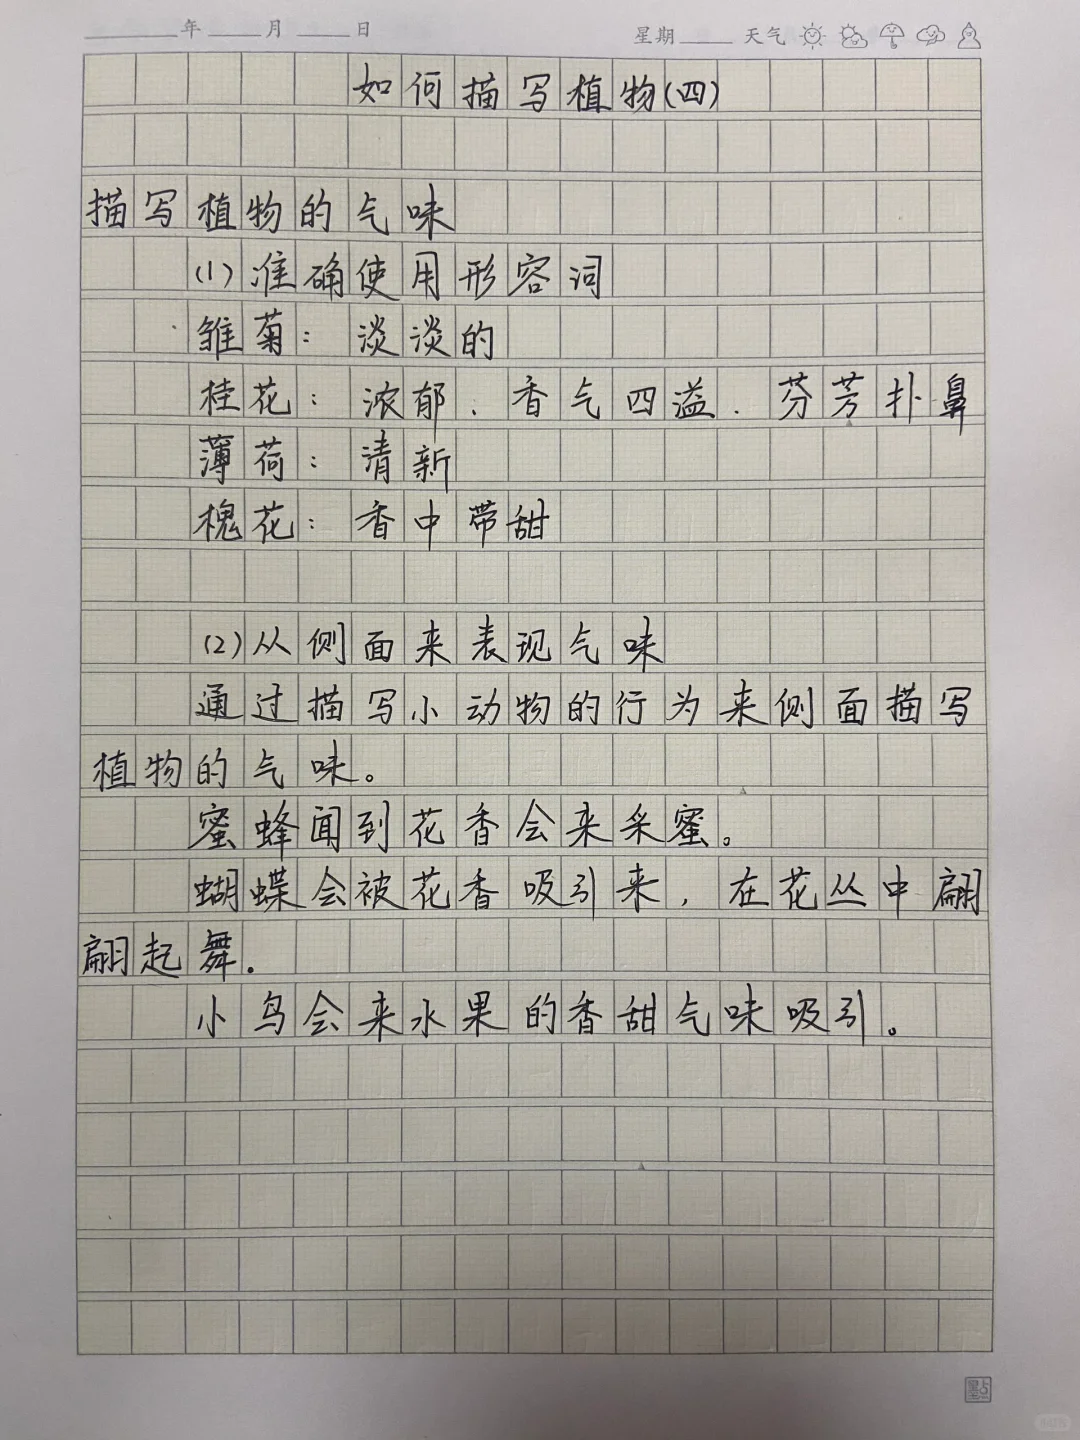 ____年____月____日 星期____ 天气
如何描写植物(四)
描写植物的气味
(1)准确使用形容词
雏菊：淡淡的
桂花：浓郁、香气四溢、芬芳扑鼻
薄荷：清新
槐花：香中带甜
(2)从侧面来表现气味
通过描写小动物的行为来侧面描写
植物的气味。
蜜蜂闻到花香会来采蜜。
蝴蝶会被花香吸引来，在花丛中翩
翩起舞.
小鸟会来水果的香甜气味吸引。